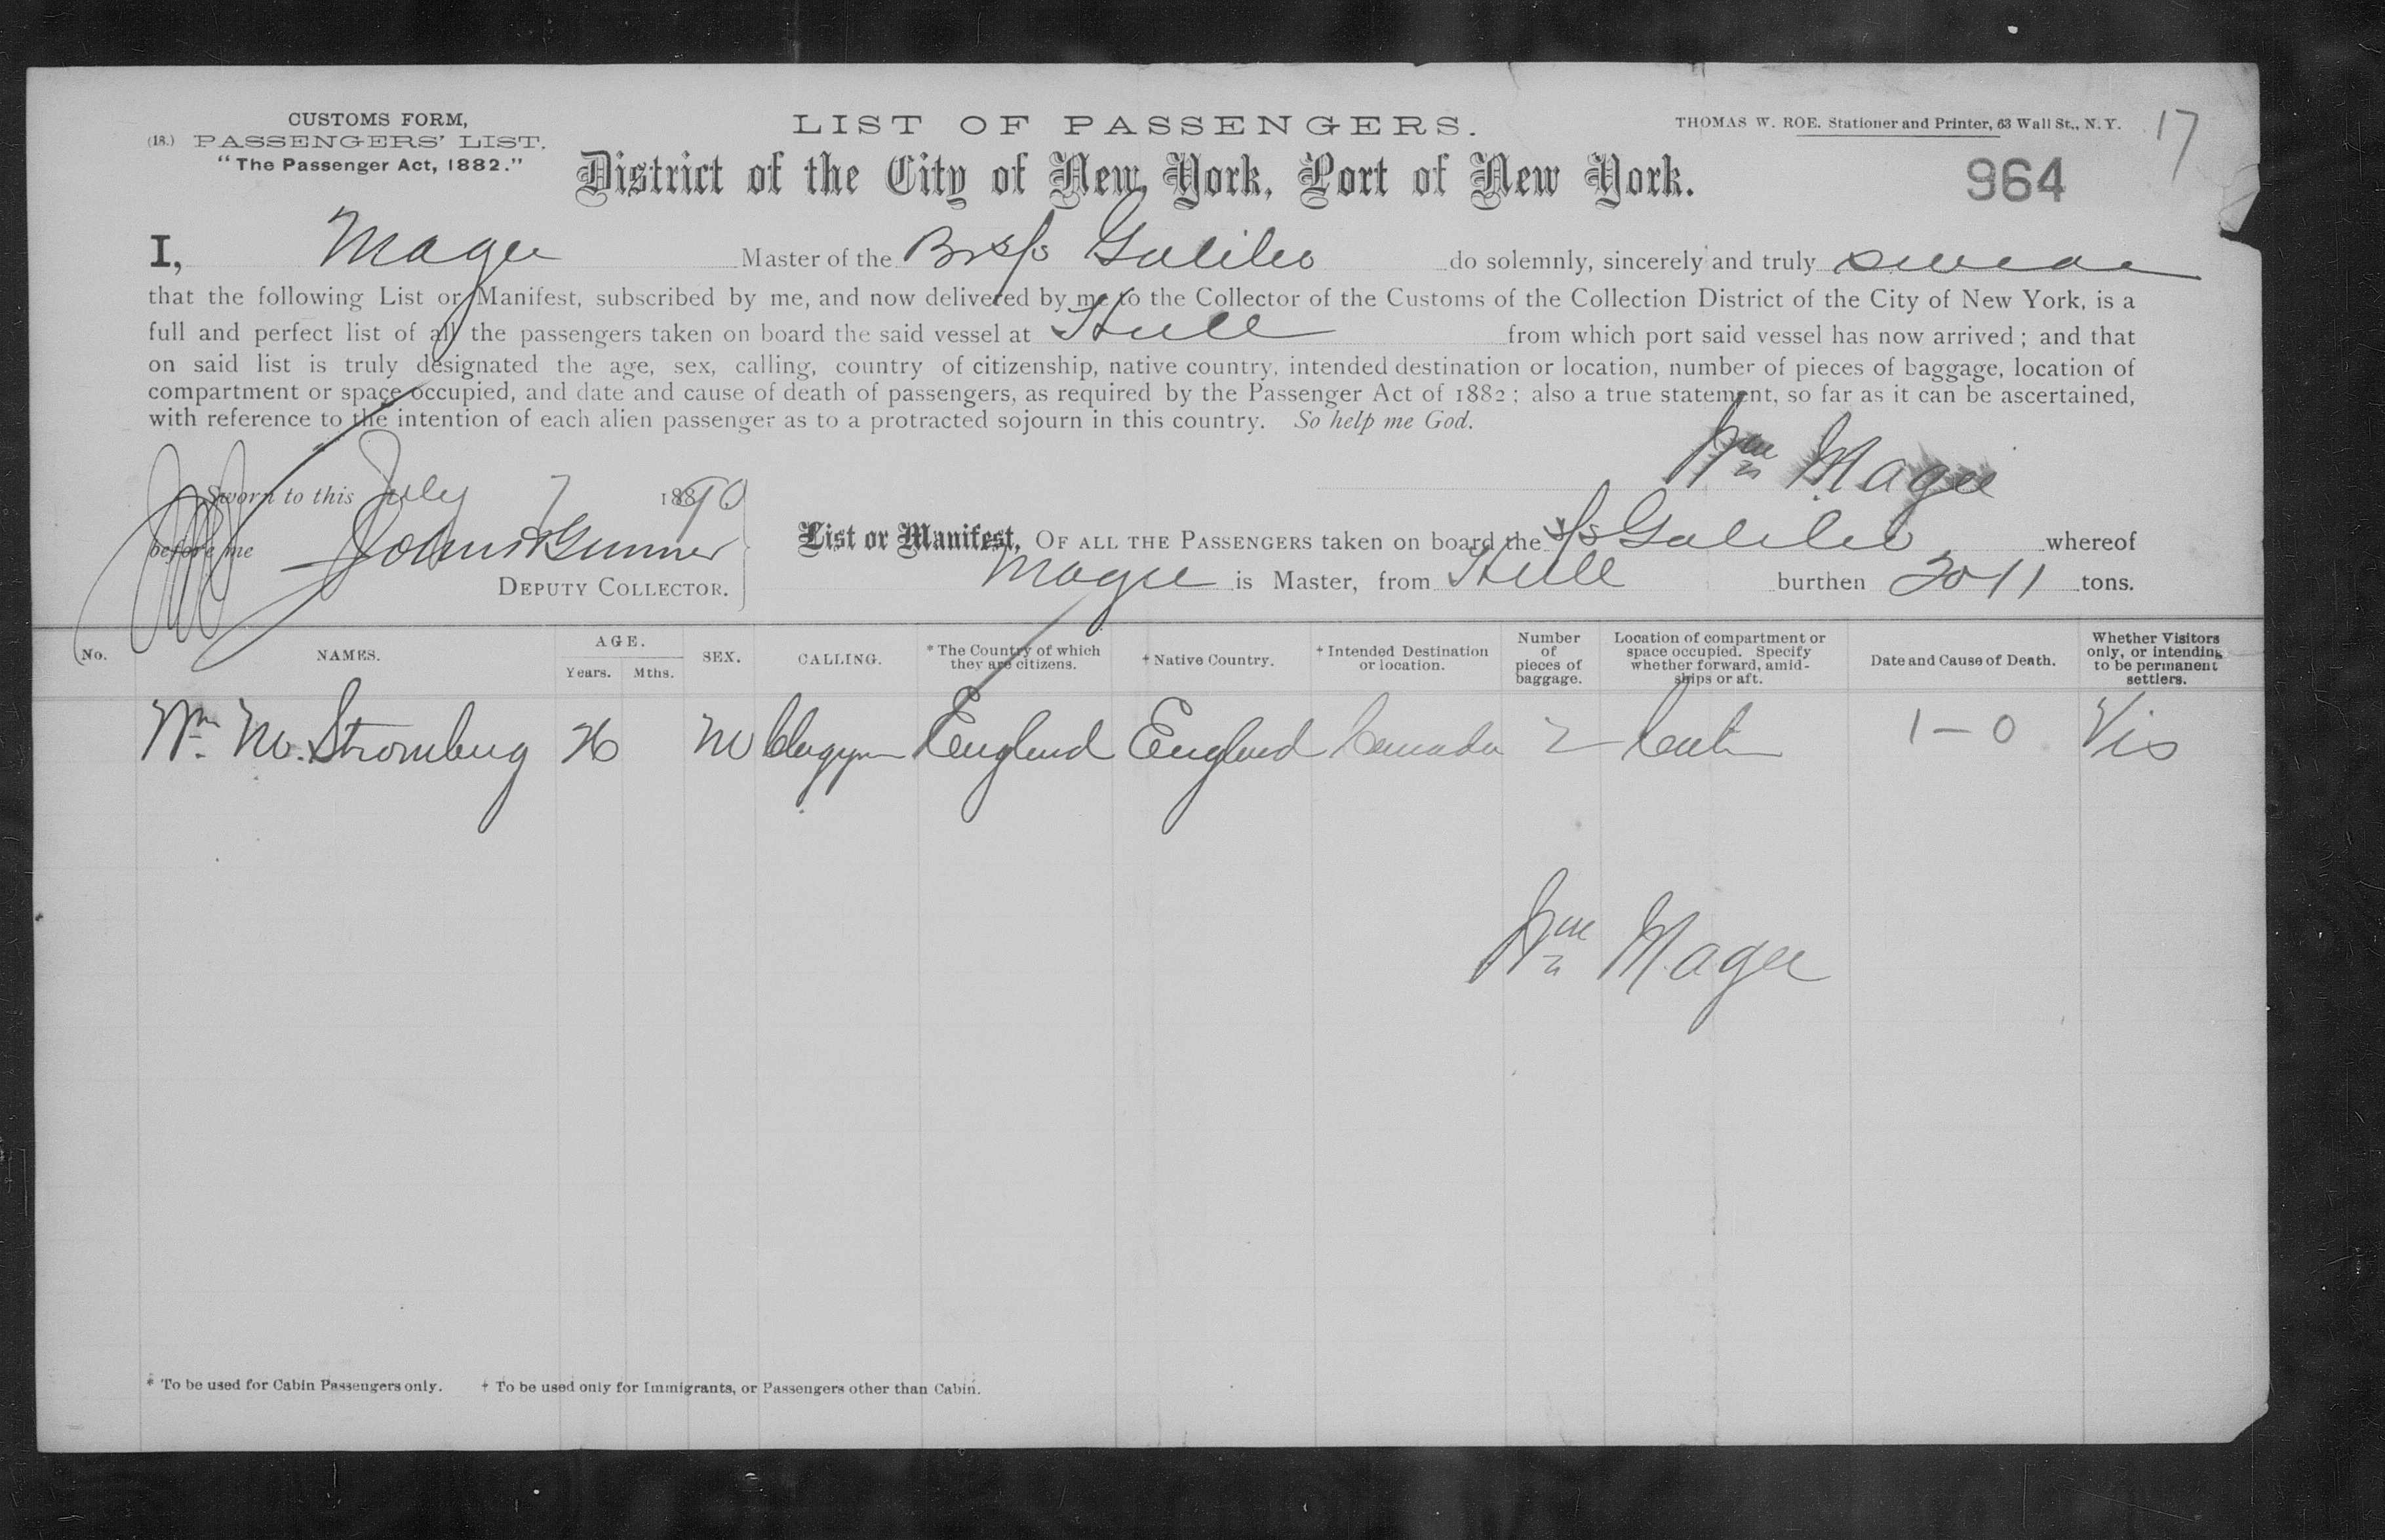 CUSTOMS FORM,
(18.) PASSENGERS' LIST.
"The Passenger Act, 1882."
LIST OF PASSENGERS.
THOMAS W. ROE. Stationer and Printer, 63 Wall St., N.Y.
17
District of the City of New York, Port of New York.
964
I, Magee Master of the Br s/s Galileo do solemnly, sincerely and truly swear
that the following List or Manifest, subscribed by me, and now delivered by me to the Collector of the Customs of the Collection District of the City of New York, is a
full and perfect list of all the passengers taken on board the said vessel at Hull from which port said vessel has now arrived; and that
on said list is truly designated the age, sex, calling, country of citizenship, native country, intended destination or location, number of pieces of baggage, location of
compartment or space occupied, and date and cause of death of passengers, as required by the Passenger Act of 1882; also a true statement, so far as it can be ascertained,
with reference to the intention of each alien passenger as to a protracted sojourn in this country. So help me God.
Wm Magee
Sworn to this July 7 1890
before me
DEPUTY COLLECTOR.
List or Manifest, OF ALL THE PASSENGERS taken on board the s/s Galileo whereof
Magee is Master, from Hull burthen 2011 tons.
No. NAMES. AGE. Years. Mths. SEX. CALLING. * The Country of which they are citizens. † Native Country. † Intended Destination or location. Number of pieces of baggage. Location of compartment or space occupied. Specify whether forward, amidships or aft. Date and Cause of Death. Whether Visitors only, or intending to be permanent settlers.
Wm M. Stromberg 26 M Clergyn England England Canada 2 1-0 Vis
Wm Magee
* To be used for Cabin Passengers only. † To be used only for Immigrants, or Passengers other than Cabin.